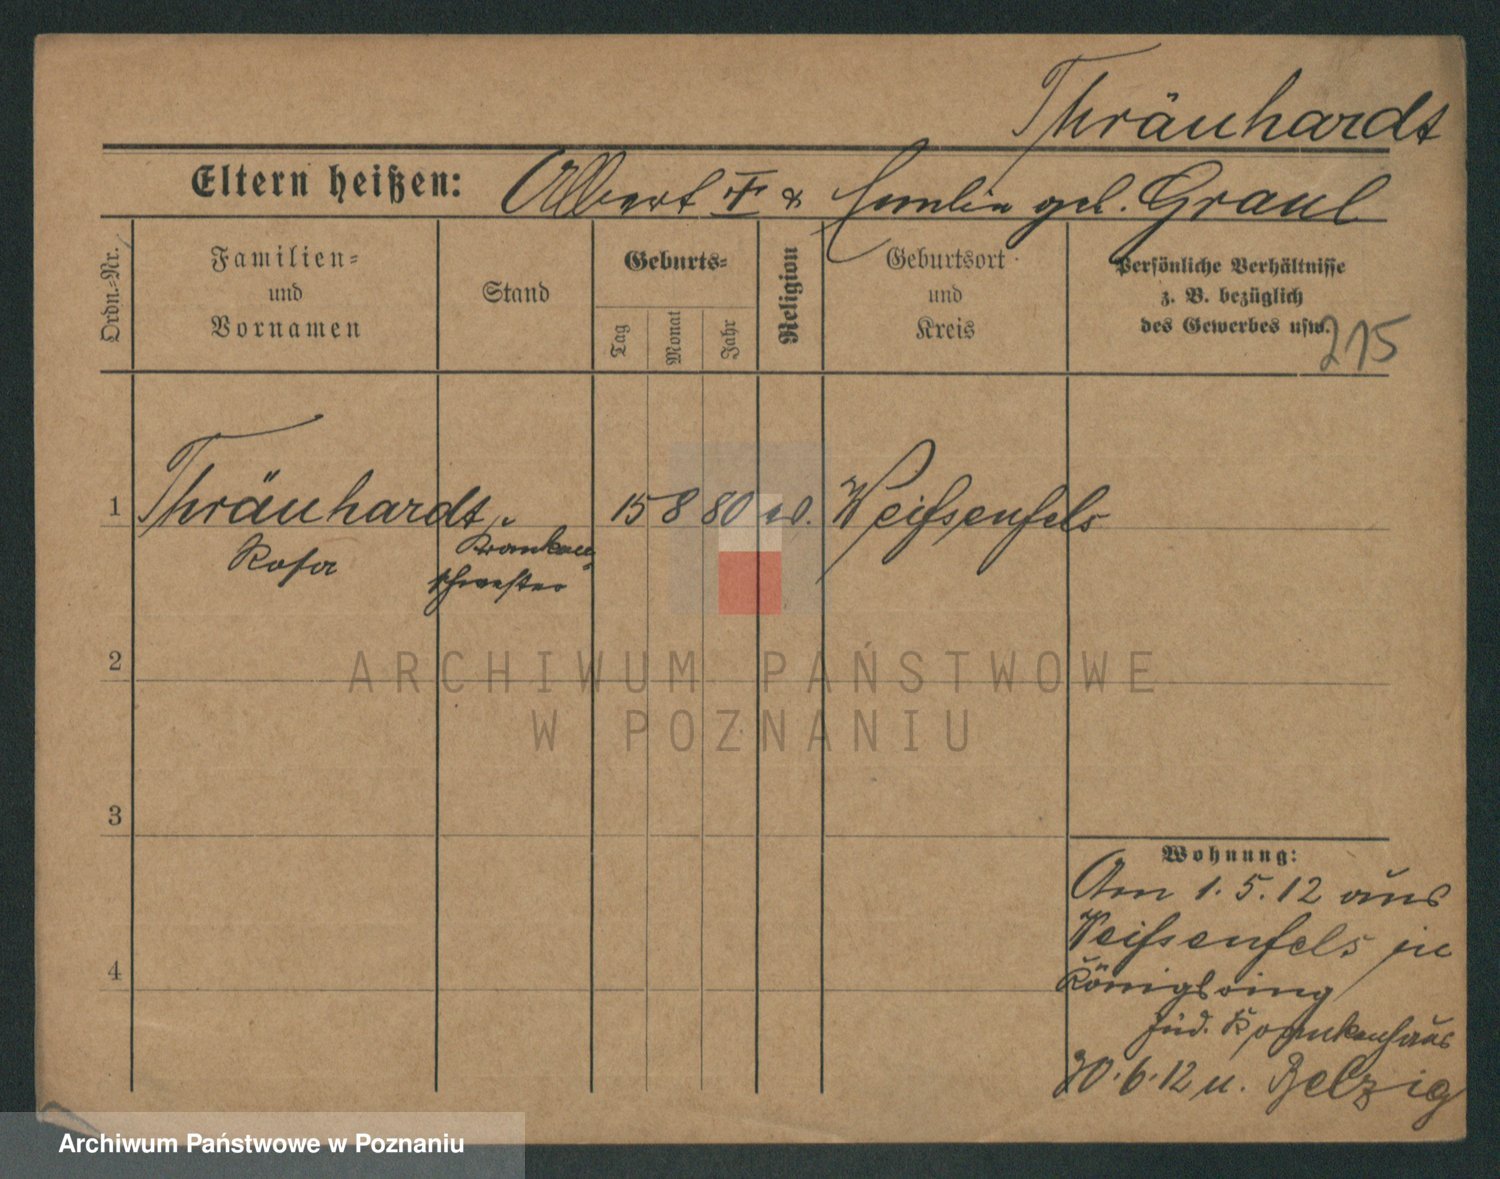 Thränhardt
Eltern heißen: Albert † & Emilie geb. Graul
Ordn.-Nr.
Familien-
und
Vornamen
Stand
Geburts-
Tag
Monat
Jahr
Religion
Geburtsort
und
Kreis
Persönliche Verhältnisse
z. B. bezüglich
des Gewerbes usw.
215
1 Thränhardt 15 8 80 ev. Weißenfels
Rosa
Kranken-
schwester
2
3
4
Wohnung:
Am 1.5.12 aus
Weißenfels in
Königsring
jüd. Krankenhaus
30.6.12 n. Belzig
ARCHIWUM PAŃSTWOWE
W POZNANIU
Archiwum Państwowe w Poznaniu